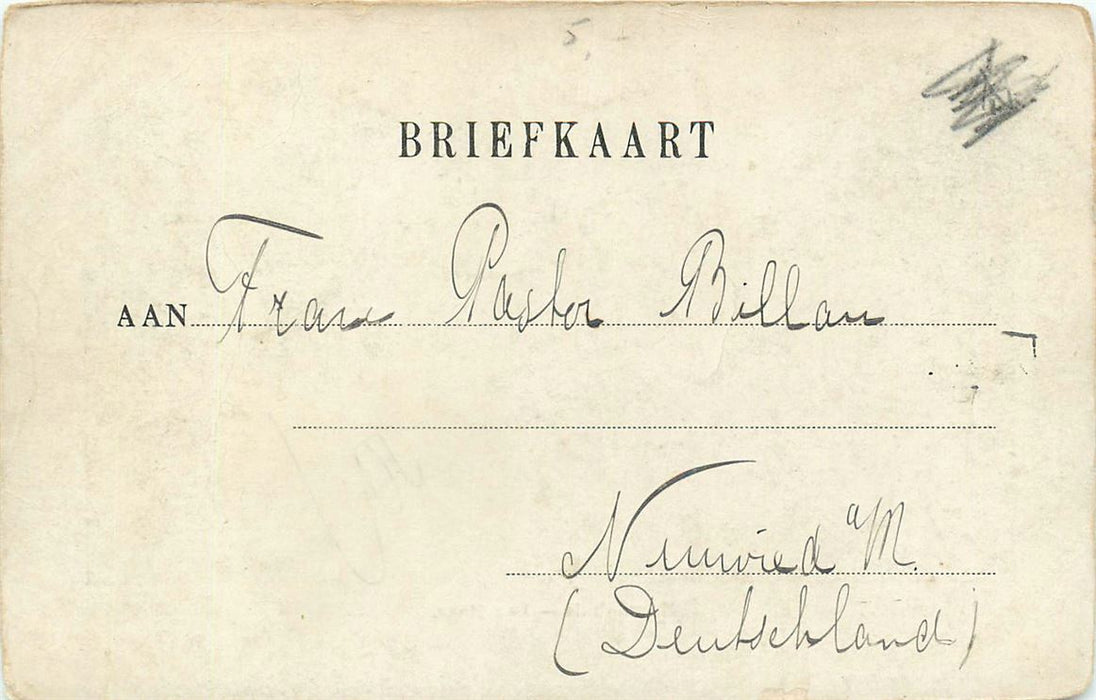 5,-
BRIEFKAART
AAN Frau Pastor Billau
Neuwied a/M.
(Deutschland)